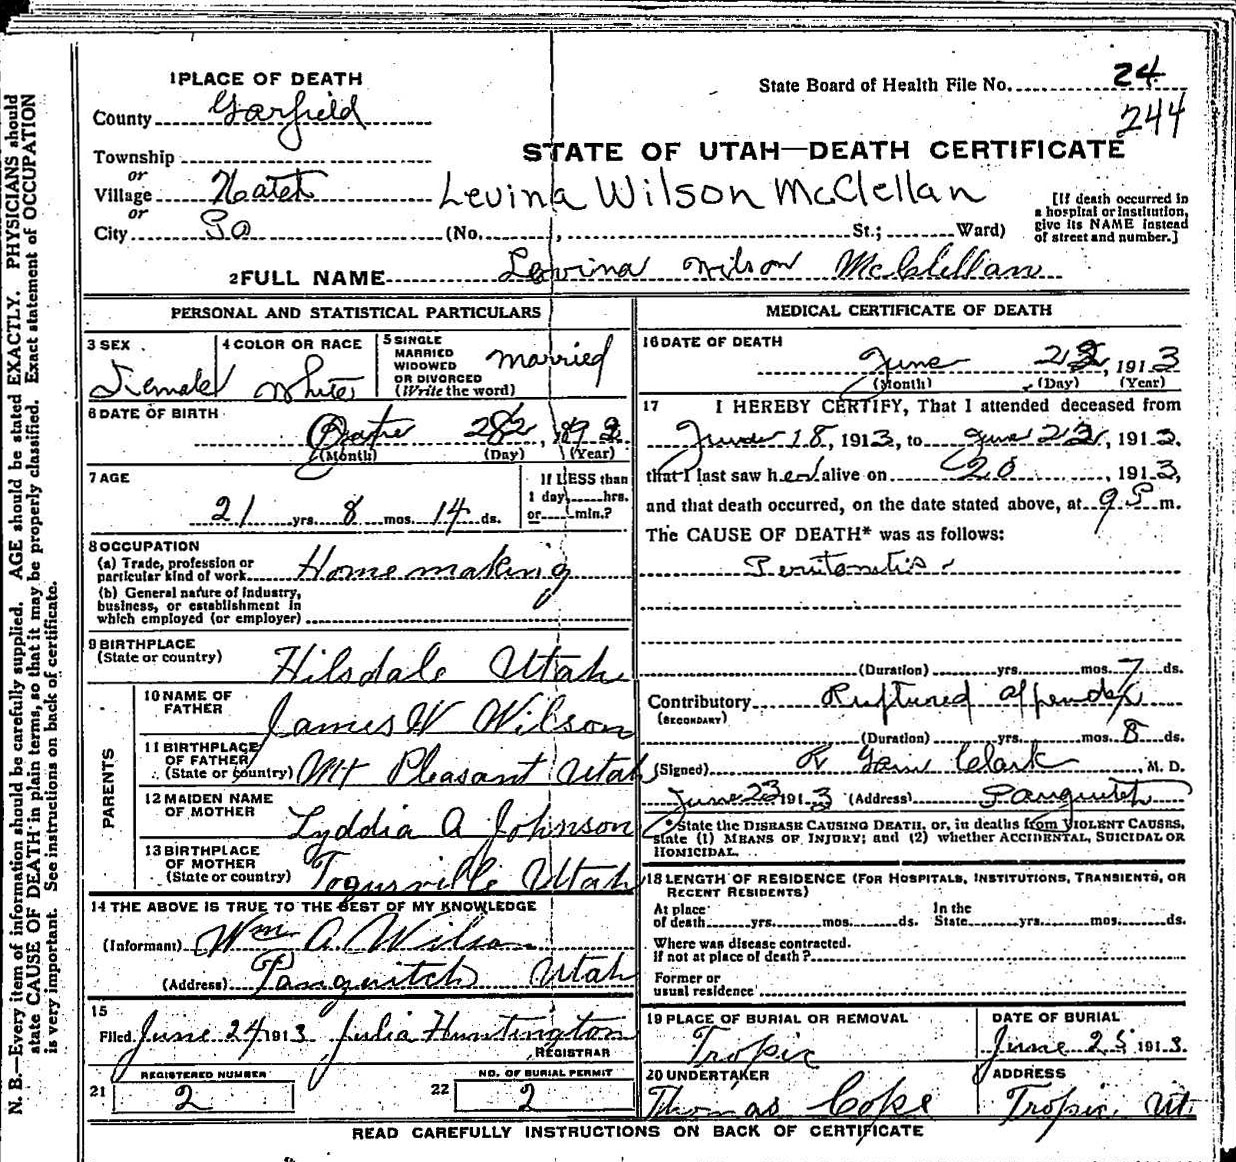 1 PLACE OF DEATH
State Board of Health File No. 24
County Garfield
244
Township
or
STATE OF UTAH—DEATH CERTIFICATE
Village
or
Levina Wilson McClellan
[If death occurred in a hospital or institution, give its NAME instead of street and number.]
City (No. , St.; Ward)
2 FULL NAME Lovina Wilson McClellan
PERSONAL AND STATISTICAL PARTICULARS
3 SEX Female
4 COLOR OR RACE White
5 SINGLE MARRIED WIDOWED OR DIVORCED (Write the word) married
6 DATE OF BIRTH
(Month) (Day) (Year)
7 AGE
If LESS than 1 day, hrs. or min.?
21 yrs. 8 mos. 14 ds.
8 OCCUPATION
(a) Trade, profession or particular kind of work Home making
(b) General nature of industry, business, or establishment in which employed (or employer)
9 BIRTHPLACE
(State or country) Hilsdale Utah
PARENTS
10 NAME OF FATHER James W Wilson
11 BIRTHPLACE OF FATHER (State or country) Mt Pleasant Utah
12 MAIDEN NAME OF MOTHER Lyddia A Johnson
13 BIRTHPLACE OF MOTHER (State or country) Utah
14 THE ABOVE IS TRUE TO THE BEST OF MY KNOWLEDGE
(Informant) Wm A. Wilson
(Address) Panguitch Utah
15
Filed June 24 1913 Julia Huntington
REGISTRAR
REGISTERED NUMBER
21 2
NO. OF BURIAL PERMIT
22 2
MEDICAL CERTIFICATE OF DEATH
16 DATE OF DEATH
June , 1913
(Month) (Day) (Year)
17 I HEREBY CERTIFY, That I attended deceased from
June 18, 1913, to June , 1913,
that I last saw her alive on 20 , 1913,
and that death occurred, on the date stated above, at 9 P m.
The CAUSE OF DEATH* was as follows:
Peritonitis
(Duration) yrs. mos. 7 ds.
Contributory Ruptured appendix
(SECONDARY)
(Duration) yrs. mos. 8 ds.
(Signed) R Clark , M. D.
June 23 1913 (Address) Panguitch
*State the DISEASE CAUSING DEATH, or, in deaths from VIOLENT CAUSES,
state (1) MEANS OF INJURY; and (2) whether ACCIDENTAL, SUICIDAL OR
HOMICIDAL.
18 LENGTH OF RESIDENCE (FOR HOSPITALS, INSTITUTIONS, TRANSIENTS, OR
RECENT RESIDENTS)
At place of death yrs. mos. ds. In the State yrs. mos. ds.
Where was disease contracted.
If not at place of death?
Former or
usual residence
19 PLACE OF BURIAL OR REMOVAL
Tropic
DATE OF BURIAL
June 25 1913.
20 UNDERTAKER
Thomas Cope
ADDRESS
Tropic, Ut.
READ CAREFULLY INSTRUCTIONS ON BACK OF CERTIFICATE
N. B.—Every item of information should be carefully supplied. AGE should be stated EXACTLY. PHYSICIANS should
state CAUSE OF DEATH in plain terms, so that it may be properly classified. Exact statement of OCCUPATION
is very important. See instructions on back of certificate.